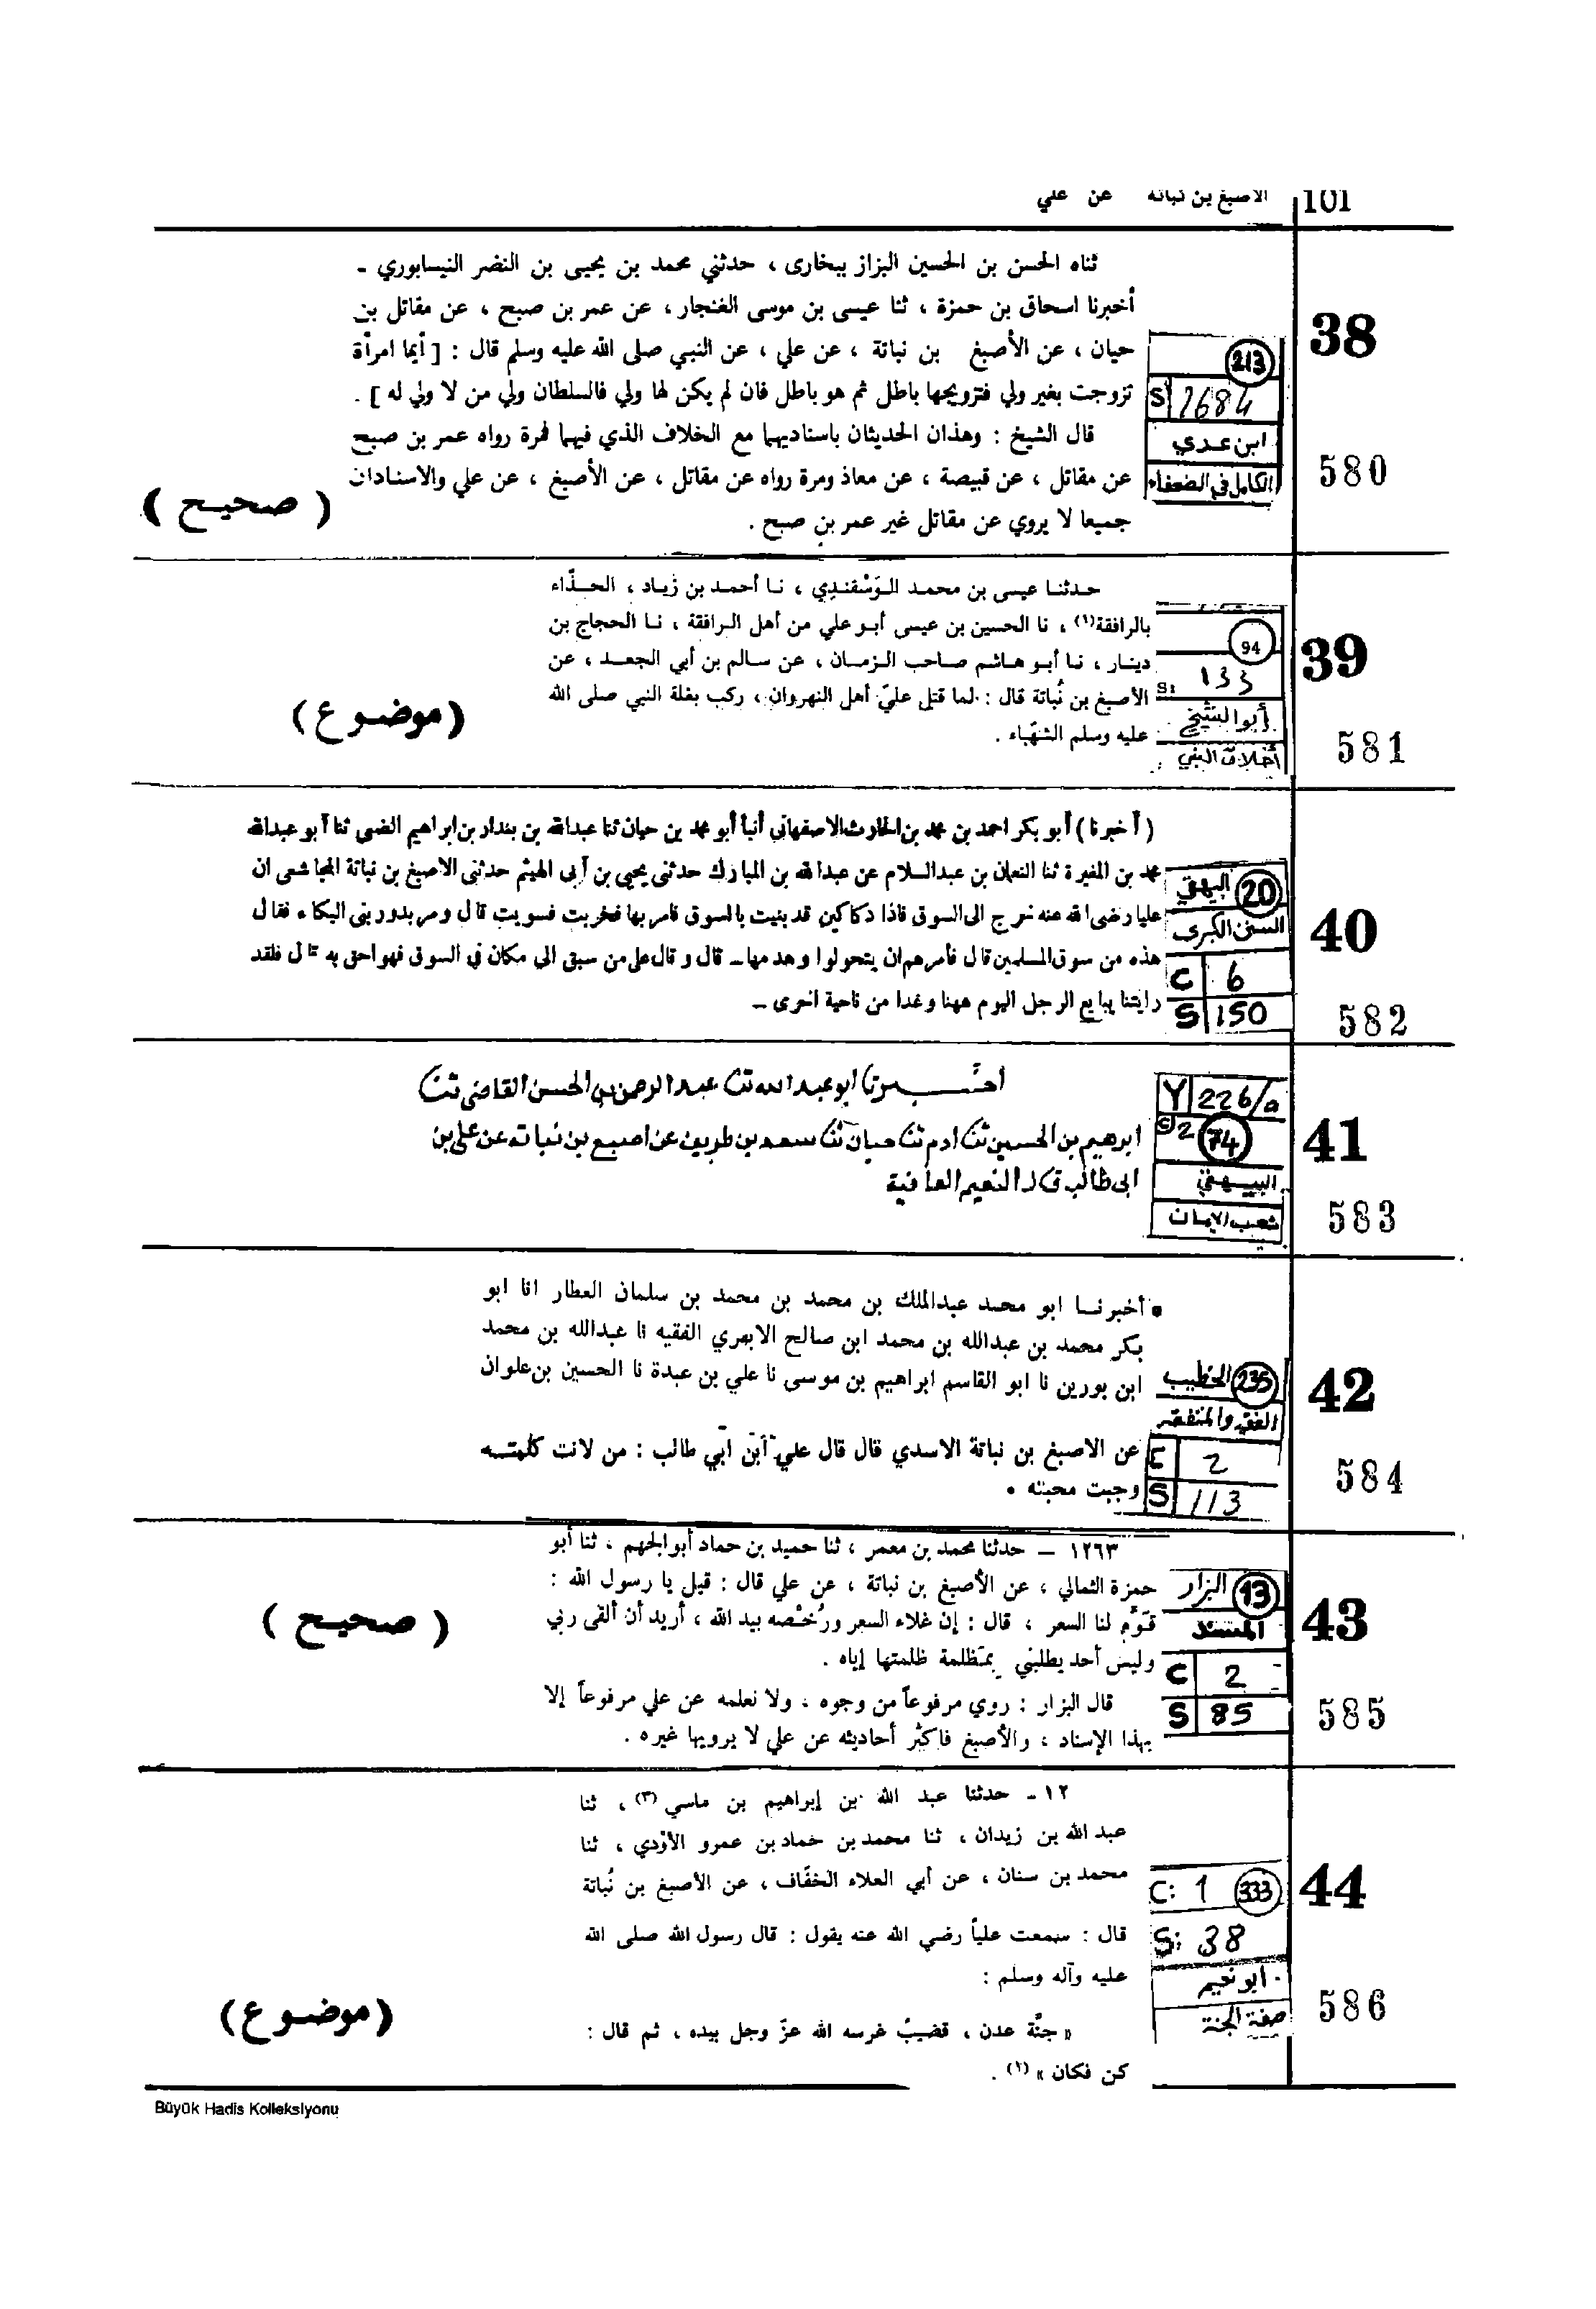 101 الاصبغ بن نباته عن علي
ثناه الحسن بن الحسين البزاز ببخارى ، حدثني محمد بن يحيى بن النضر النيسابوري -
أخبرنا اسحاق بن حمزة ، ثنا عيسى بن موسى الغنجار ، عن عمر بن صبح ، عن مقاتل بن
حيان ، عن الأصبغ بن نباتة ، عن علي ، عن النبي صلى الله عليه وسلم قال : [ أيما امرأة
تزوجت بغير ولي فتزويجها باطل ثم هو باطل فان لم يكن لها ولي فالسلطان ولي من لا ولي له ] .
قال الشيخ : وهذان الحديثان باسناديهما مع الخلاف الذي فيهما فمرة رواه عمر بن صبح
عن مقاتل ، عن قبيصة ، عن معاذ ومرة رواه عن مقاتل ، عن الأصبغ ، عن علي والاسنادان
جميعا لا يروي عن مقاتل غير عمر بن صبح .
( صحيح )
38
213
S 1684
ابن عدي
الكامل في الضعفاء
580
حدثنا عيسى بن محمد الوَسْقندِي ، نا أحمد بن زياد ، الحذّاء
بالرافقة (١) ، نا الحسين بن عيسى أبو علي من أهل الرافقة ، نا الحجاج بن
دينار ، نا أبو هاشم صاحب الزمان ، عن سالم بن أبي الجعد ، عن
الأصبغ بن نُباتة قال : لما قتل عليّ أهل النهروان ، ركب بغلة النبي صلى الله
عليه وسلم الشهباء .
(موضوع)
39
94
S: 133
أبو الشيخ
أخلاق النبي
581
( أخبرنا ) أبو بكر احمد بن محمد بن الحارث الاصفهاني أنبأ أبو محمد بن حيان ثنا عبدالله بن بندار بن ابراهيم الضبى ثنا أبو عبدالله
محمد بن المغيرة ثنا النعمان بن عبدالسلام عن عبدالله بن المبارك حدثنى يحيى بن أبى الهيثم حدثنى الاصبغ بن نباتة المجاشعى ان
عليا رضى الله عنه خرج الى السوق فاذا دكاكين قد بنيت بالسوق فامر بها فخربت فسويت قال ومر بدور بنى البكاء فقال
هذه من سوق المسلمين قال فأمرهم ان يتحولوا وهدمها - قال وقال على من سبق الى مكان فى السوق فهو احق به قال فلقد
رايتنا يبايع الرجل اليوم ههنا وغدا من ناحية اخرى -
40
20 البيهقي
السنن الكبرى
C 6
S 150
582
أخبرنا ابو عبد الله ثنا عبد الرحمن بن الحسن القاضي ثنا
ابرهيم بن الحسين ثنا ادم ثنا حبان ثنا سعد بن طريف عن اصبع بن نباته عن علي بن
ابي طالب قال النعيم العافية
41
Y 226/a
C 2 74
البيهقي
شعب الايمان
583
• أخبرنا ابو محمد عبدالملك بن محمد بن محمد بن سلمان العطار انا ابو
بكر محمد بن عبدالله بن محمد ابن صالح الابهري الفقيه نا عبدالله بن محمد
ابن بورين نا ابو القاسم ابراهيم بن موسى نا علي بن عبدة نا الحسين بن علوان
عن الاصبغ بن نباتة الاسدي قال قال علي أبن ابي طالب : من لانت كلمته
وجبت محبته •
42
235 الخطيب
الفقيه والمتفقه
C 2
S 113
584
١٢٦٣ – حدثنا محمد بن معمر ، ثنا حميد بن حماد أبو الجهم ، ثنا أبو
حمزة الثمالي ، عن الأصبغ بن نباتة ، عن علي قال : قيل يا رسول الله :
قوّم لنا السعر ، قال : إن غلاء السعر ورُخْصه بيد الله ، أريد أن ألقى ربي
وليس أحد يطلبني بمظلمة ظلمتها إياه .
قال البزار : روي مرفوعاً من وجوه ، ولا نعلمه عن علي مرفوعاً إلا
بهذا الإسناد ، والأصبغ فأكثر أحاديثه عن علي لا يرويها غيره .
( صحيح )
43
13 البزار
المسند
C 2
S 85
585
١٢ - حدثنا عبد الله بن إبراهيم بن ماسي (٣) ، ثنا
عبد الله بن زيدان ، ثنا محمد بن حماد بن عمرو الأزدي ، ثنا
محمد بن سنان ، عن أبي العلاء الخفّاف ، عن الأصبغ بن نُباتة
قال : سمعت علياً رضي الله عنه يقول : قال رسول الله صلى الله
عليه وآله وسلم :
« جنّة عدن ، قضيبٌ غرسه الله عزّ وجل بيده ، ثم قال :
كن فكان » (١) .
(موضوع)
44
C: 1 333
S: 38
ابو نعيم
صفة الجنة
586
Büyük Hadis Kolleksiyonu